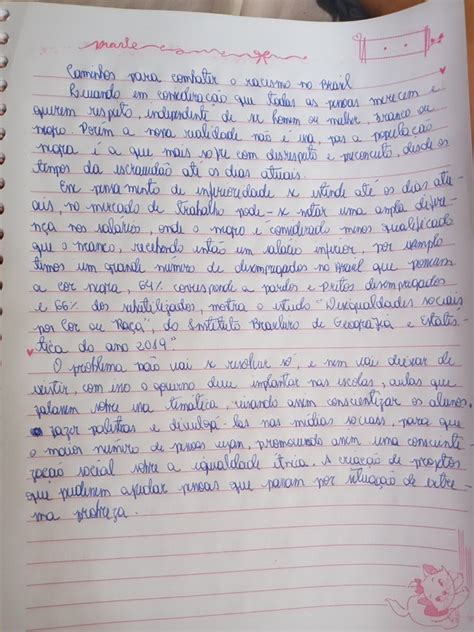 Marie
Caminhos para combater o racismo no Brasil
Levando em consideração que todas as pessoas merecem e
querem respeito, independente de ser homem ou mulher, branco ou
negro. Porem a nossa realidade não é essa, pois a população
negra é a que mais sofre com desrespeito e preconceito, desde os
tempos da escravidão até os dias atuais.
Esse pensamento de inferioridade se estende até os dias atu-
ais, no mercado de trabalho pode-se notar uma ampla diferen-
ça nos salários, onde o negro e considerado menos qualificado
que o branco, recebendo então um salário inferior, por exemplo
temos um grande número de desempregados no Brasil que possuem
a cor negra, 64% corresponde a pardos e pretos desempregados
e 66% dos subutilizados, mostra o estudo "Desigualdades sociais
por Cor ou Raça", do Instituto Brasileiro de Geografia e Estatís-
tica do ano 2019."
O problema não vai se resolver só, e nem vai deixar de
existir, com isso o governo deve implantar nas escolas, aulas que
falassem sobre essa temática, visando assim conscientizar os alunos.
fazer palestras e divulgá-las nas mídias sociais, para que
o maior número de pessoas vejam, promovendo assim uma conscienti-
zação social sobre a igualdade étnica. A criação de projetos
que pudessem ajudar pessoas que passam por situação de extre-
ma pobreza.